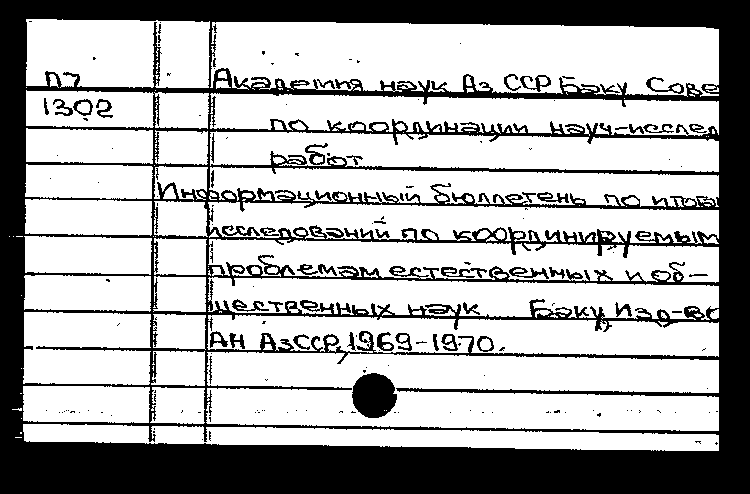 П7
1302
Академия наук Аз ССР Баку Сове
по координации науч-исслед
работ
Информационный бюллетень по итога
исследований по координируемым
проблемам естественных и об-
щественных наук Баку, Изд-во
АН АзССР, 1969-1970.